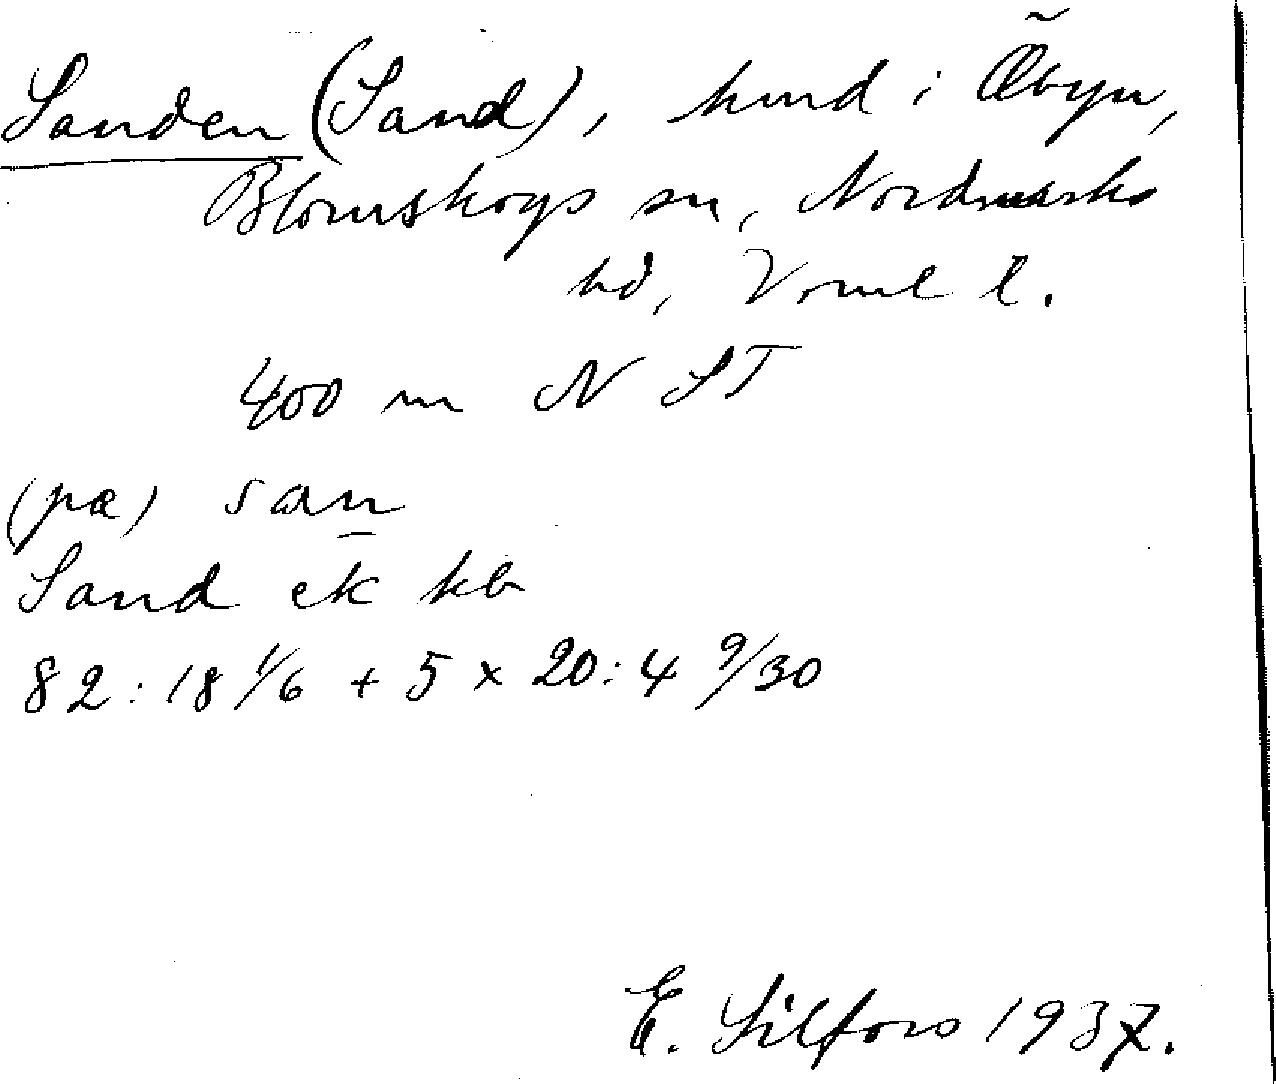 Sanden (Sand), hmd i Åbyn,
Blomskogs sn, Nordmarks
hd, Värml l.
400 m N ST
(pα) san
Sand ek kb
82:18 1/6 + 5 x 20:4 9/30
E. Silfors 1937.